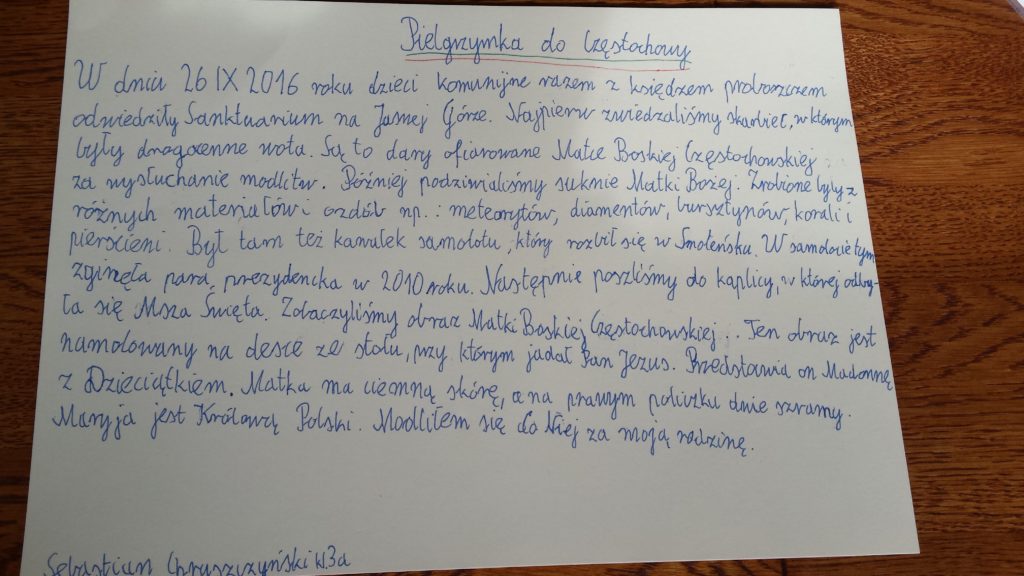 Pielgrzymka do Częstochowy
W dniu 26 IX 2016 roku dzieci komunijne razem z księdzem proboszczem
odwiedziły Sanktuarium na Jasnej Górze. Najpierw zwiedzaliśmy skarbiec, w którym
były drogocenne wota. Są to dary ofiarowane Matce Boskiej Częstochowskiej
za wysłuchanie modlitw. Później podziwialiśmy suknie Matki Bożej. Zrobione były z
różnych materiałów i ozdób np.: meteorytów, diamentów, bursztynów, korali i
pierścieni. Był tam też kawałek samolotu, który rozbił się w Smoleńsku. W samolocie tym
zginęła para prezydencka w 2010 roku. Następnie poszliśmy do kaplicy, w której odby-
ła się Msza Święta. Zobaczyliśmy obraz Matki Boskiej Częstochowskiej. Ten obraz jest
namalowany na desce ze stołu, przy którym jadał Pan Jezus. Przedstawia on Madonnę
z Dzieciątkiem. Matka ma ciemną skórę, a na prawym policzku dwie szramy.
Maryja jest Królową Polski. Modliłem się do Niej za moją rodzinę.
Sebastian Chruszczyński kl.3a